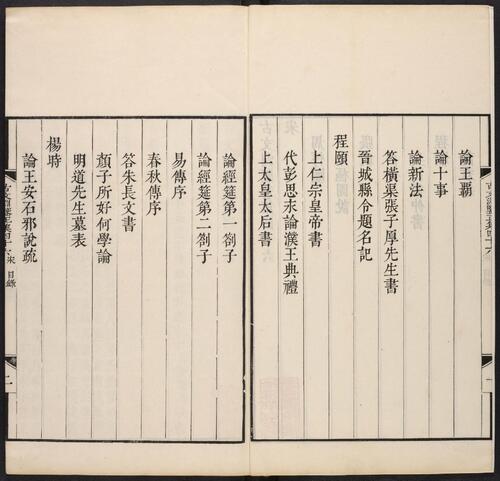 論王霸
論十事
論新法
答橫渠張子厚先生書
晉城縣令題名記
程頤
上仁宗皇帝書
代彭思永論濮王典禮
上太皇太后書
論經筵第一劄子
論經筵第二劄子
易傳序
春秋傳序
答朱長文書
顏子所好何學論
明道先生墓表
楊時
論王安石邪說疏
宋 目錄
二